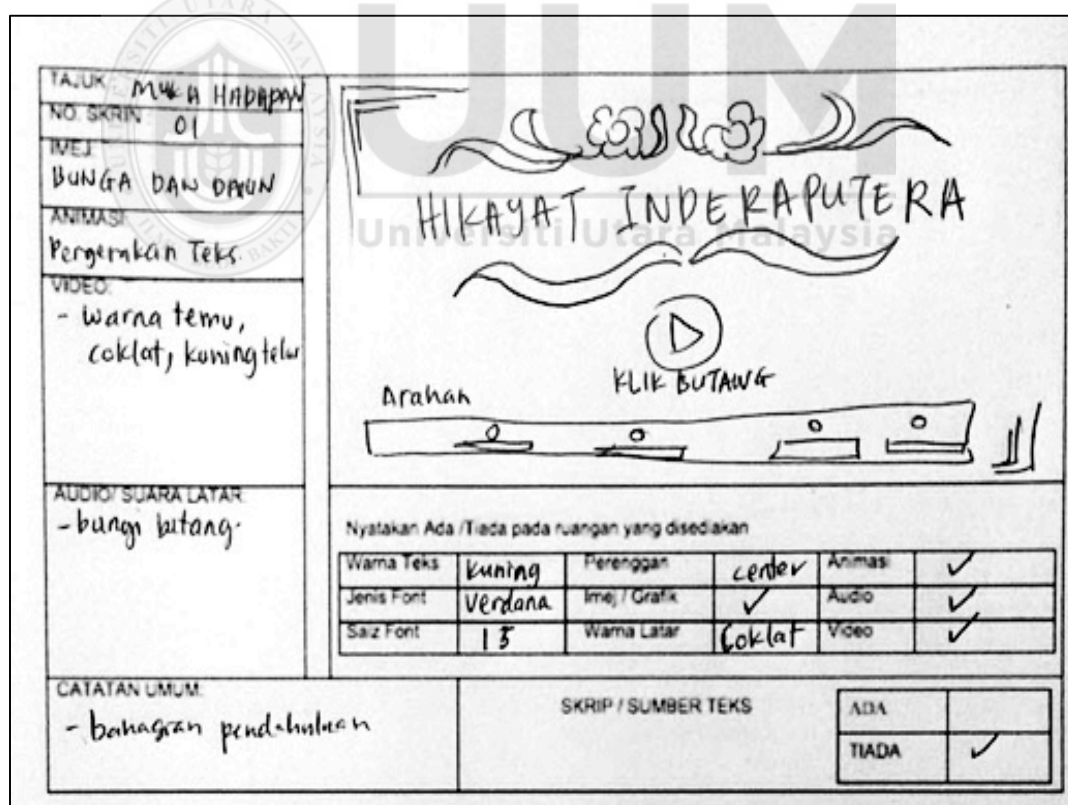 UUM
Universiti Utara Malaysia
TAJUK: MUKA HADAPAN
NO. SKRIN 01
IMEJ
BUNGA DAN DAUN
ANIMASI
Pergerakan Teks.
VIDEO:
- warna temu,
coklat, kuning telur
AUDIO/ SUARA LATAR:
- bunyi butang.
HIKAYAT INDERAPUTERA
KLIK BUTANG
Arahan
Nyatakan Ada /Tiada pada ruangan yang disediakan
Warna Teks Kuning Perenggan center Animasi ✓
Jenis Font Verdana Imej / Grafik ✓ Audio ✓
Saiz Font 15 Warna Latar Coklat Video ✓
CATATAN UMUM:
- bahagian pendahuluan
SKRIP / SUMBER TEKS
ADA
TIADA ✓